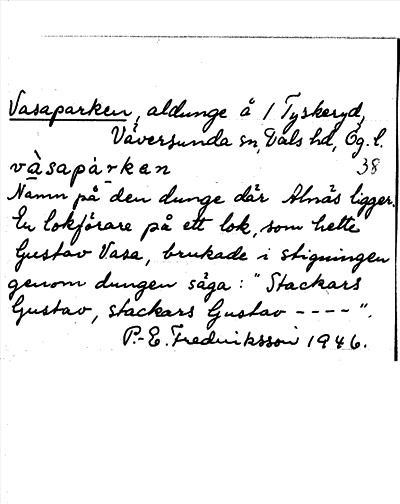 Vasaparken, aldunge å 1 Tyskeryd,
Väversunda sn, Dals hd, Ög. l.
vàsapárkan 38
Namn på den dunge där Alnäs ligger.
En lokförare på ett lok, som hette
Gustav Vasa, brukade i stigningen
genom dungen säga: "Stackars
Gustav, stackars Gustav ----".
P.-E. Fredriksson 1946.